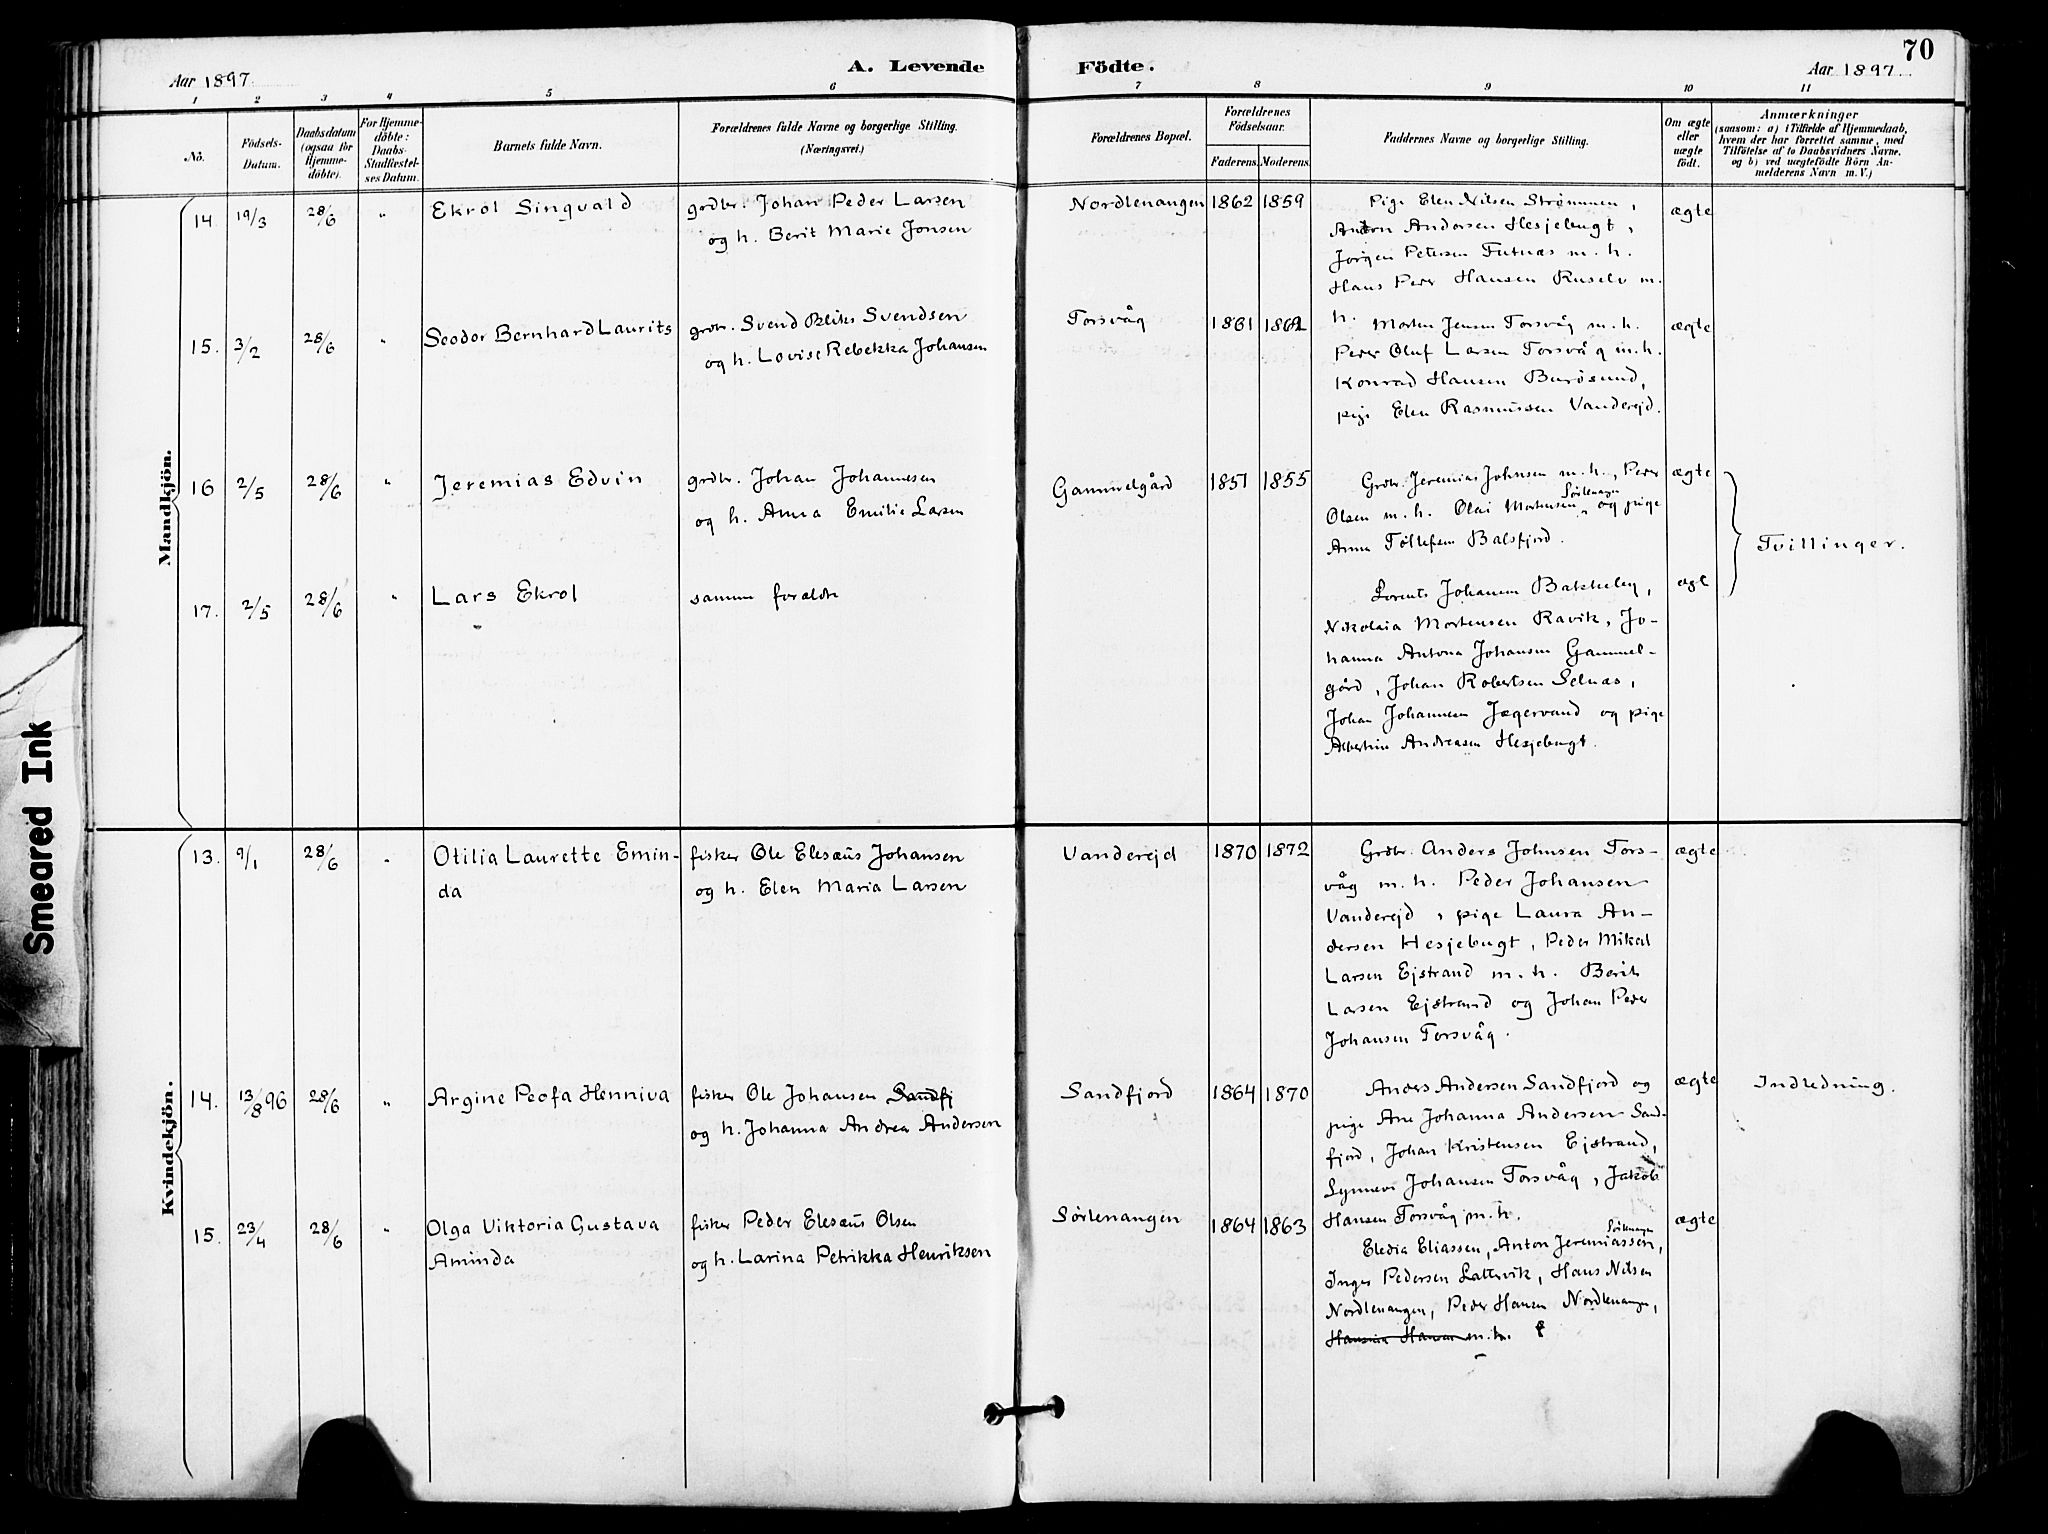 70
Aar 1897
A. Levende Födte.
Aar 1897
1 2 3 4 5 6 7 8 9 10 11
No.
Födsels-
Datum.
Daabsdatum
(ogsaa for
Hjemme-
döbte).
For Hjemme-
döbte:
Daabs-
Stadfæstel-
ses Datum.
Barnets fulde Navn.
Forældrenes fulde Navne og borgerlige Stilling.
(Næringsvei.)
Forældrenes Bopæl.
Forældrenes
Födselsaar.
Faderens. Moderens.
Faddernes Navne og borgerlige Stilling.
Om ægte
eller
uægte
født.
Anmærkninger
(saasom: a) i Tilfælde af Hjemmedaab,
hvem der har forrettet samme, med
Tilföielse af to Daabsvidners Navne,
og b) ved uægtefödte Börn An-
melderens Navn m. V.)
Mandkjön.
14. 19/3 28/6 " Ekrol Singvald
grdbr. Johan Peder Larsen
og h. Berit Marie Jonsen
Nordlenangen 1862 1859
Pige Elen Nilsen Strømmen,
Anton Andersen Hesjebugt,
Jørgen Petersen Futnæs m. h.
Hans Peder Hansen Ruselv m.
h.
ægte
15. 3/2 28/6 " Seodor Bernhard Laurits
grdbr. Svend Bliks Svendsen
og h. Lovise Rebekka Johansen
Torsvåg 1861 1862
Morten Jensen Torsvåg m. h.
Peder Oluf Larsen Torsvåg m. h.
Konrad Hansen Burøsund,
pige Elen Rasmussen Vanderejd.
ægte
16 2/5 28/6 " Jeremias Edvin
grdbr. Johan Johannesen
og h. Anna Emilie Larsen
Gammelgård 1851 1855
Grdbr. Jeremias Johnsen m. h., Peder
Olsen m. h. Olai Mortensen Sørlenangen, og pige
Anna Tollefsen Balsfjord.
ægte
Tvillinger.
17. 2/5 28/6 " Lars Ekrol
samme forældre
Lorents Johansen Bakkeby,
Nikolaia Mortensen Ravik, Jo-
hanna Antona Johansen Gammel-
gård, Johan Robertsen Selnæs,
Johan Johannesen Jægervand og pige
Albertine Andreasen Hesjebugt.
ægt
Kvindekjön.
13. 9/1 28/6 " Otilia Laurette Emin-
da
fisker Ole Elesæus Johansen
og h. Elen Maria Larsen
Vanderejd 1870 1872
Grdbr. Anders Johnsen Tors-
våg m. h. Peder Johansen
Vanderejd, pige Laura An-
dersen Hesjebugt, Peder Mikal
Larsen Ejstrand m. h. Berit
Larsen Ejstrand og Johan Peder
Johansen Torsvåg.
ægte
14. 13/8 96 28/6 " Argine Peofa Henniva
fisker Ole Johansen Sandfj
og h. Johanna Andrea Andersen
Sandfjord 1864 1870
Anders Andersen Sandfjord og
pige Ane Johanna Andersen Sand-
fjord, Johan Kristensen Ejstrand,
Synnevi Johansen Torsvåg, Jakob
Hansen Torsvåg m. h.
ægte
Indledning.
15. 23/4 28/6 " Olga Viktoria Gustava
Aminda
fisker Peder Elesæus Olsen
og h. Larina Petrikka Henriksen
Sörlenangen 1864 1863
Eledia Eliassen, Anton Jeremiassen Sörlenangen,
Inger Pedersen Lattervik, Hans Nilsen
Nordlenangen, Peder Hansen Nordlenangen,
Hansina Hansen m. h.
ægte
Smeared Ink